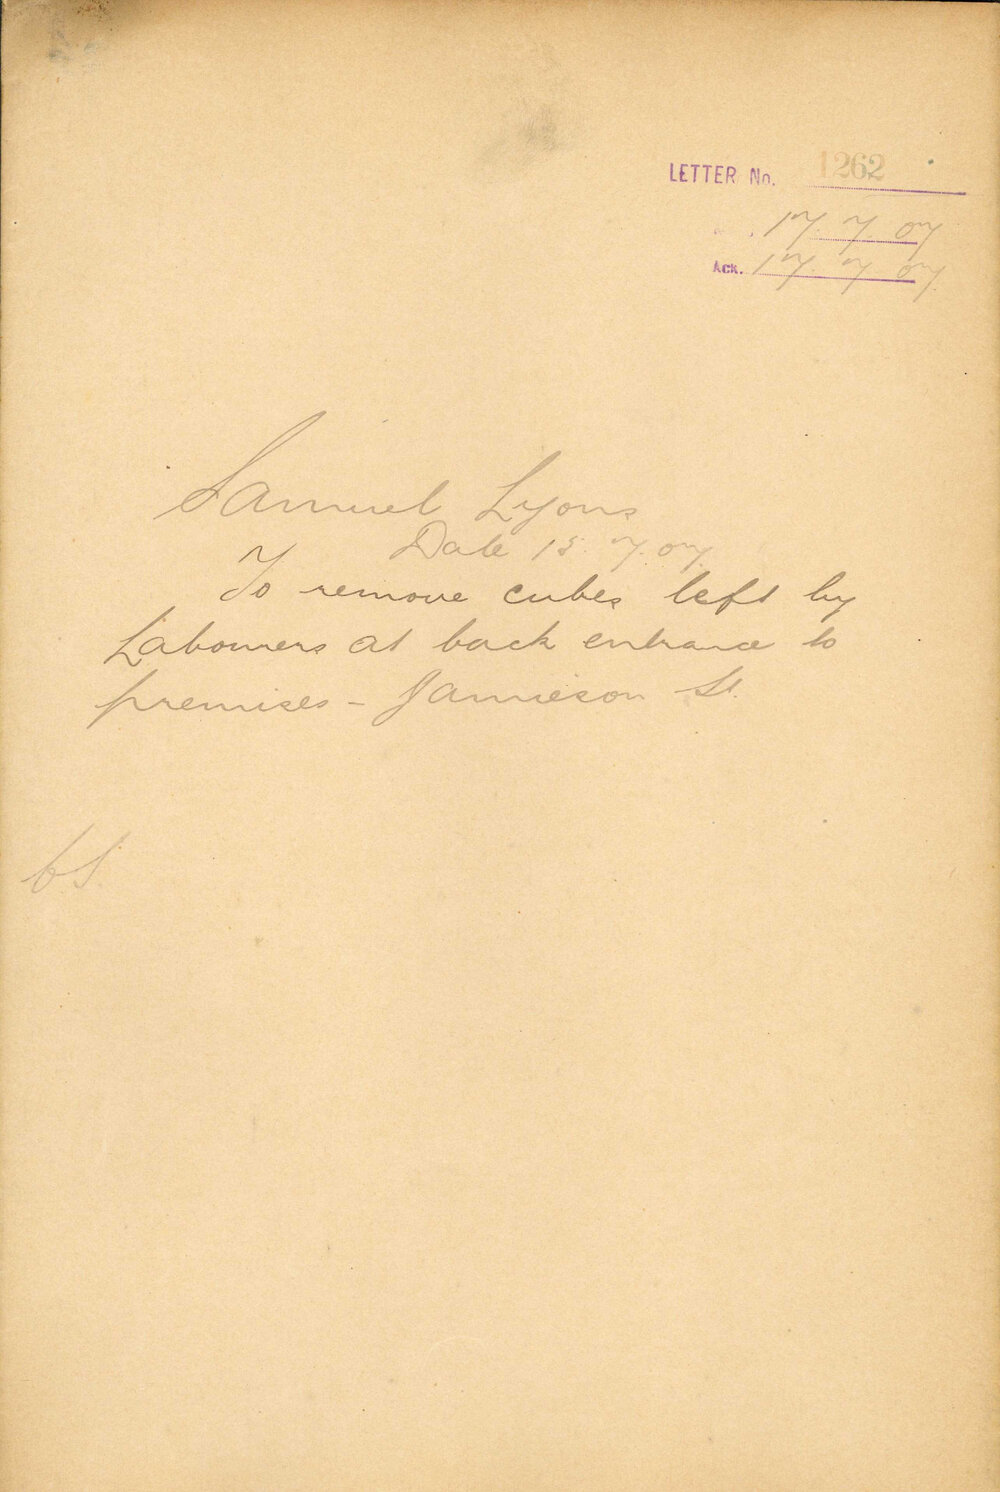 LETTER No. 1262
17. 7. 07
Ack. 17. 7. 07.
Samuel Lyons
Date 15. 7. 07.
To remove cubes left by
Labourers at back entrance to
premises - Jamieson St.